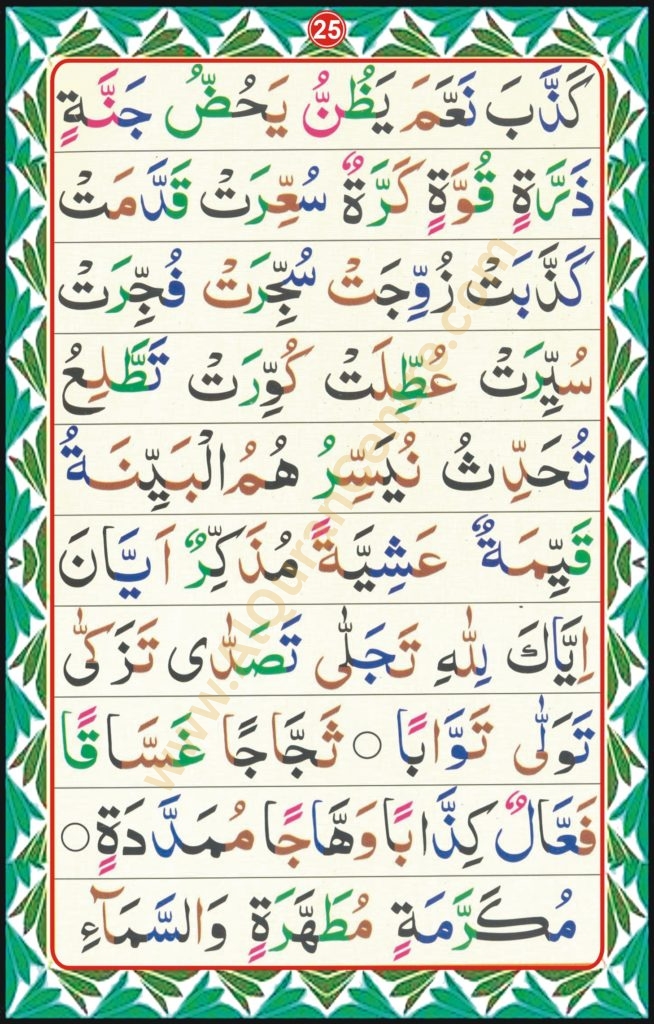 25
كَذَّبَ نَعَّمَ يَظُنُّ يَحُضُّ جَنَّةٍ
ذَرَّةٍ قُوَّةٍ كَرَّةٌ سُعِّرَتْ قَدَّمَتْ
كَذَّبَتْ زُوِّجَتْ سُجِّرَتْ فُجِّرَتْ
سُيِّرَتْ عُطِّلَتْ كُوِّرَتْ تَطَّلِعُ
تُحَدِّثُ نُيَسِّرُ هُمُ الْبَيِّنَةُ
قَيِّمَةٌ عَشِيَّةً مُذَكِّرٌ اَيَّانَ
اِيَّاكَ لِلّٰهِ تَجَلّٰى تَصَدّٰى تَزَكّٰى
تَوَلّٰى تَوَّابًا ○ ثَجَّاجًا غَسَّاقًا
فَعَّالٌ كِذَّابًا وَهَّاجًا مُمَدَّدَةٍ ○
مُكَرَّمَةٍ مُطَهَّرَةٍ وَالسَّمَآءِ
www.AlQuranCentre.com